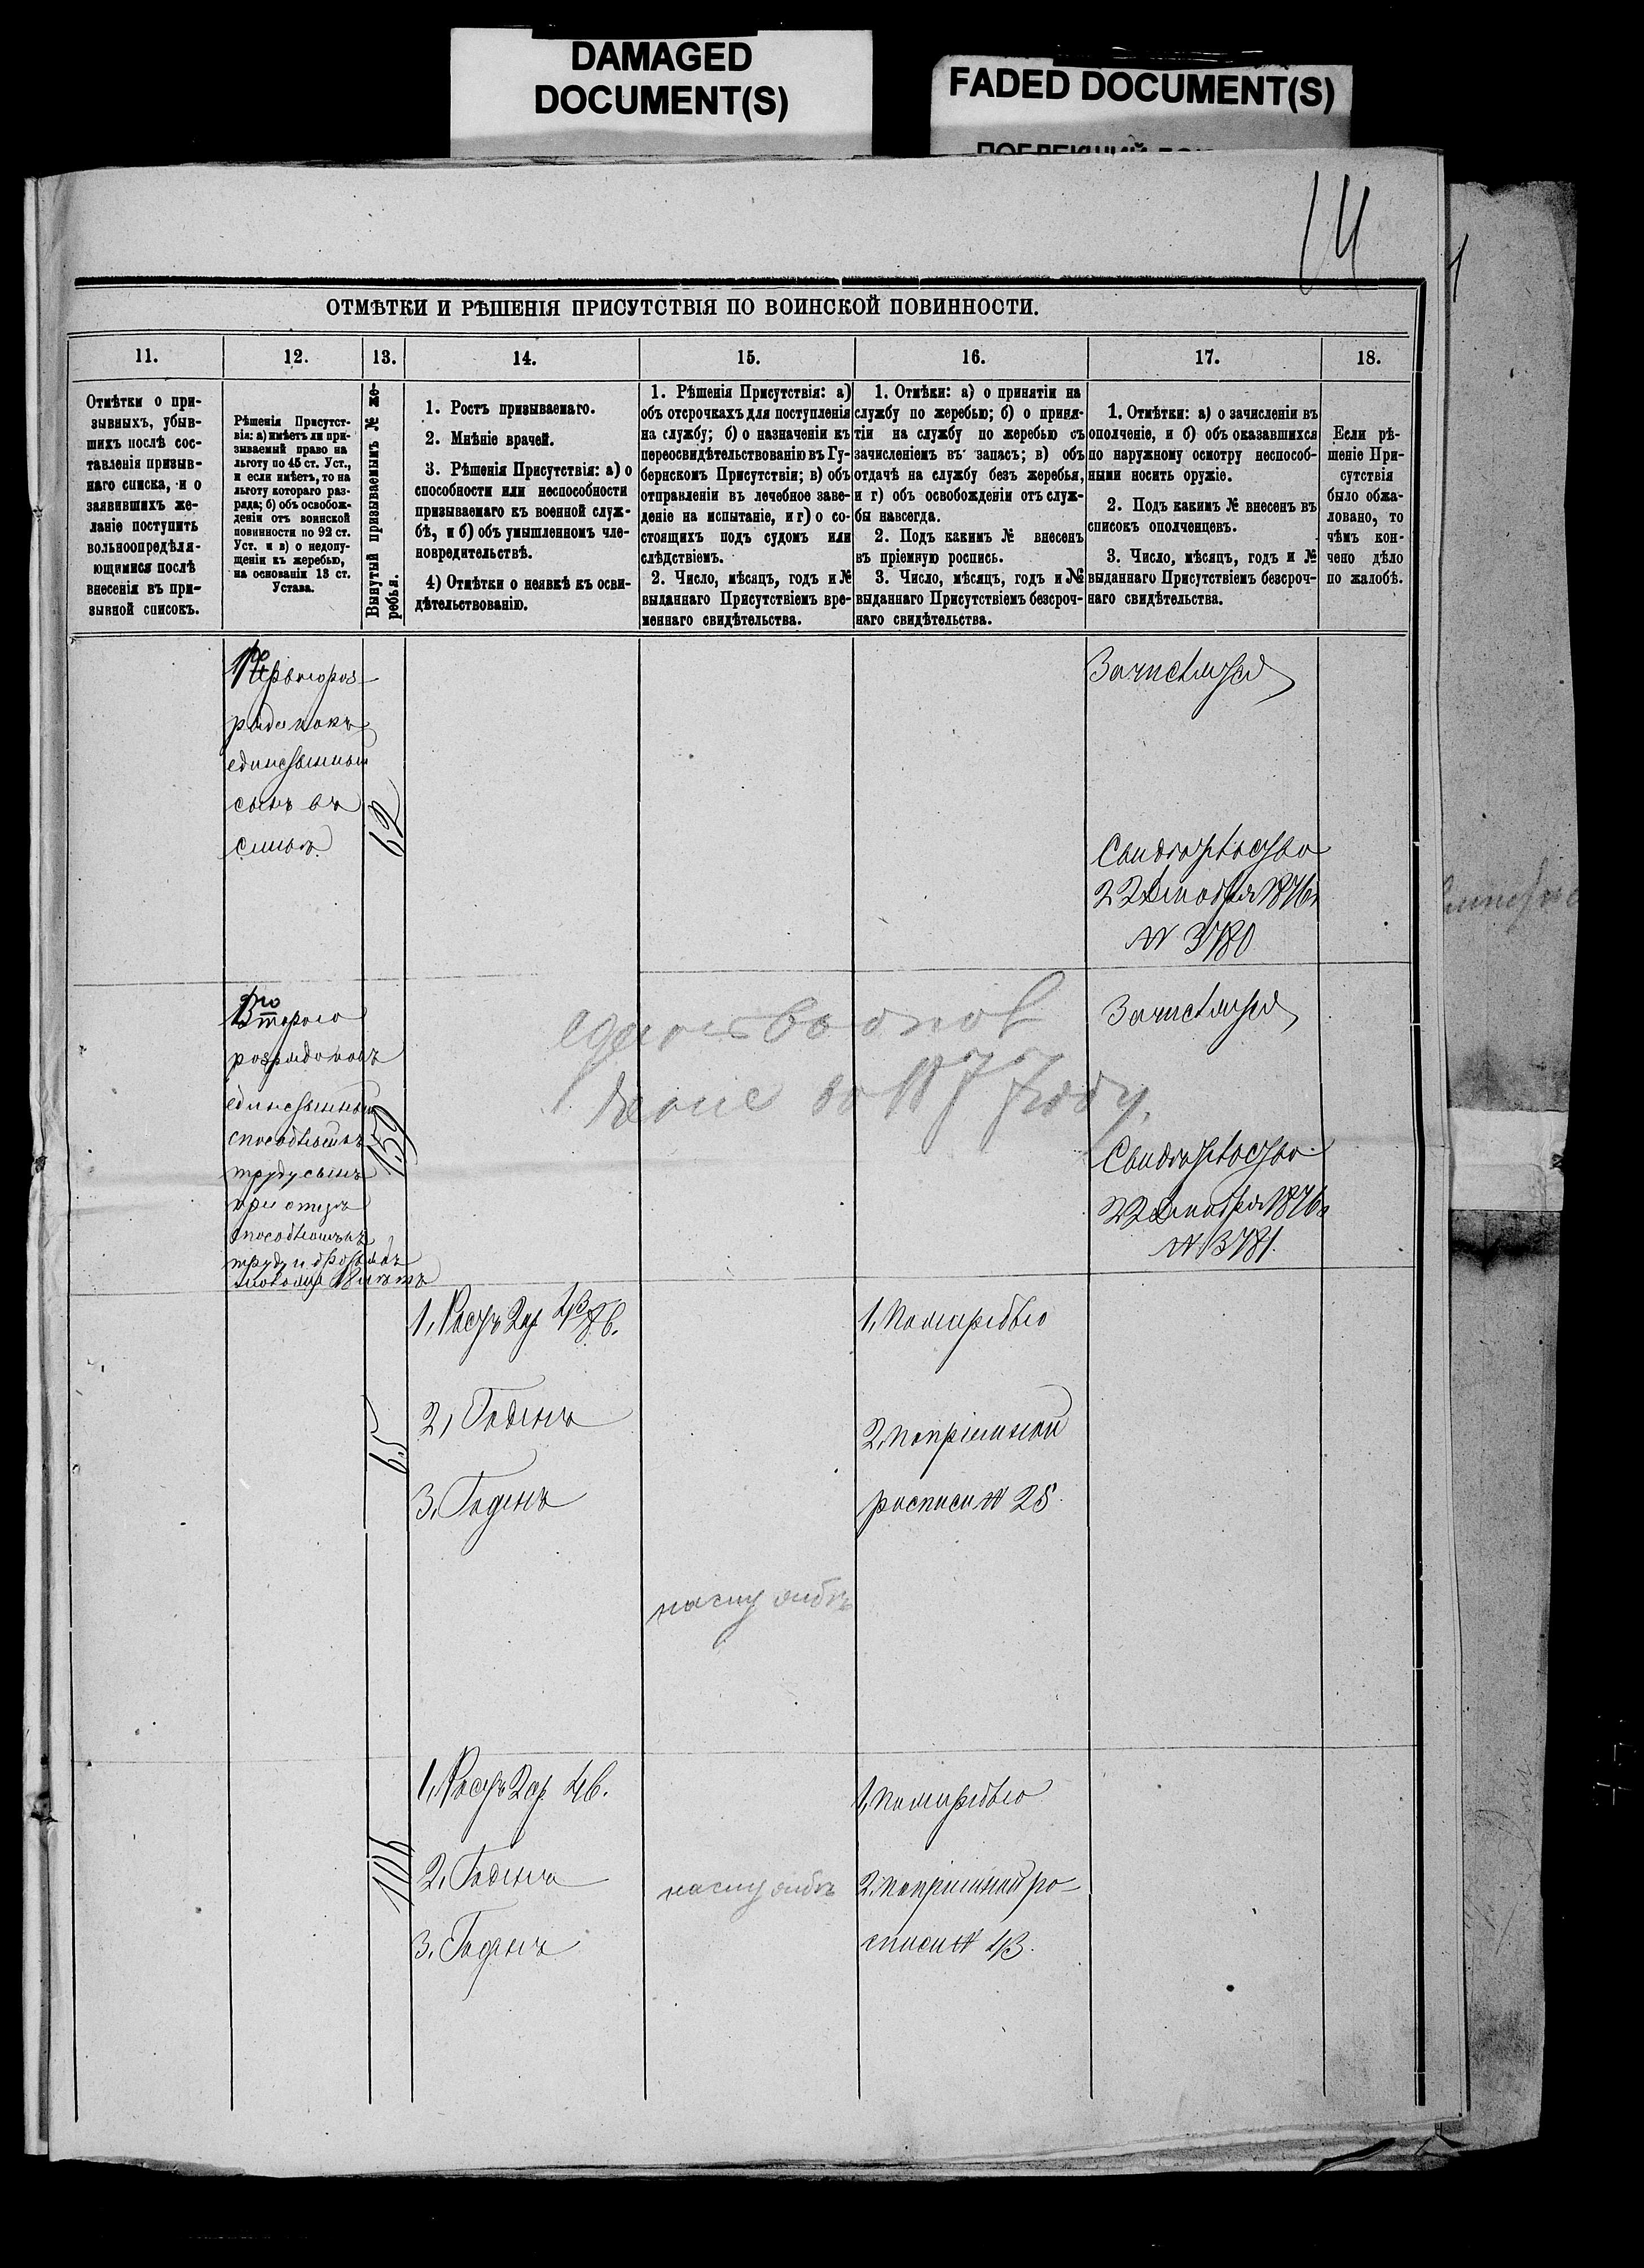 DAMAGED
DOCUMENT(S)
FADED DOCUMENT(S)
14
ОТМѢТКИ И РѢШЕНІЯ ПРИСУТСТВІЯ ПО ВОИНСКОЙ ПОВИННОСТИ.
11.
12.
13.
14.
15.
16.
17.
18.
Отмѣтки о при-
зывныхъ, убыв-
шихъ послѣ сос-
тавленія призыв-
наго списка, и о
заявившихъ же-
ланіе поступить
вольноопредѣля-
ющимися послѣ
внесенія въ при-
зывной списокъ.
Рѣшенія Присутст-
вія: а) имѣетъ ли при-
зываемый право на
льготу по 45 ст. Уст.,
и если имѣетъ, то на
льготу котораго раз-
ряда; б) объ освобож-
деніи отъ воинской
повинности по 92 ст.
Уст. и в) о недопу-
щеніи къ жеребью,
на основаніи 13 ст.
Устава.
Вынутый призываемымъ № же-
ребья.
1. Ростъ призываемаго.
2. Мнѣніе врачей.
3. Рѣшенія Присутствія: а) о
способности или неспособности
призываемаго къ военной служ-
бѣ, и б) объ умышленномъ чле-
новредительствѣ.
4) Отмѣтки о неявкѣ къ осви-
дѣтельствованію.
1. Рѣшенія Присутствія: а)
объ отсрочкахъ для поступленія
на службу; б) о назначеніи къ
переосвидѣтельствованію въ Гу-
бернскомъ Присутствіи; в) объ
отправленіи въ лечебное заве-
деніе на испытаніе, и г) о со-
стоящихъ подъ судомъ или
слѣдствіемъ.
2. Число, мѣсяцъ, годъ и №
выданнаго Присутствіемъ вре-
меннаго свидѣтельства.
1. Отмѣки: а) о принятіи на
службу по жеребью; б) о приня-
тіи на службу по жеребью съ
зачисленіемъ въ запасъ; в) объ
отдачѣ на службу безъ жеребья,
и г) объ освобожденіи отъ служ-
бы навсегда.
2. Подъ какимъ № внесенъ
въ пріемную роспись.
3. Число, мѣсяцъ, годъ и №
выданнаго Присутствіемъ безсроч-
наго свидѣтельства.
1. Отмѣтки: а) о зачисленіи въ
ополченіе, и б) объ оказавшихся
по наружному осмотру неспособ-
ными носить оружіе.
2. Подъ какимъ № внесенъ въ
списокъ ополченцевъ.
3. Число, мѣсяцъ, годъ и №
выданнаго Присутствіемъ безсроч-
наго свидѣтельства.
Если рѣ-
шеніе При-
сутствія
было обжа-
ловано, то
чѣмъ кон-
чено дѣло
по жалобѣ.
Перваго раз-
ряда какъ
единственный
сынъ въ
семьѣ.
62
Зачисляется
Свидѣтельство
22 Декабря 1876 г
№ 3780
Втораго
разряда какъ
единственный
способный къ
труду сынъ
при отцѣ
способномъ къ
труду и
18 лѣтъ
159
1877 году.
Зачисляется
Свидѣтельство
22 Декабря 1876 г
№ 3781.
65
1, Ростъ 2 ар. 4 3/8 в.
2, Годенъ
3, Годенъ
1, По жеребью
2, по пріемной
росписи № 25
106
1, Ростъ 2 ар. 4 в.
2, Годенъ
3, Годенъ
1, по жеребью
2, по пріемной ро-
списи № 43.